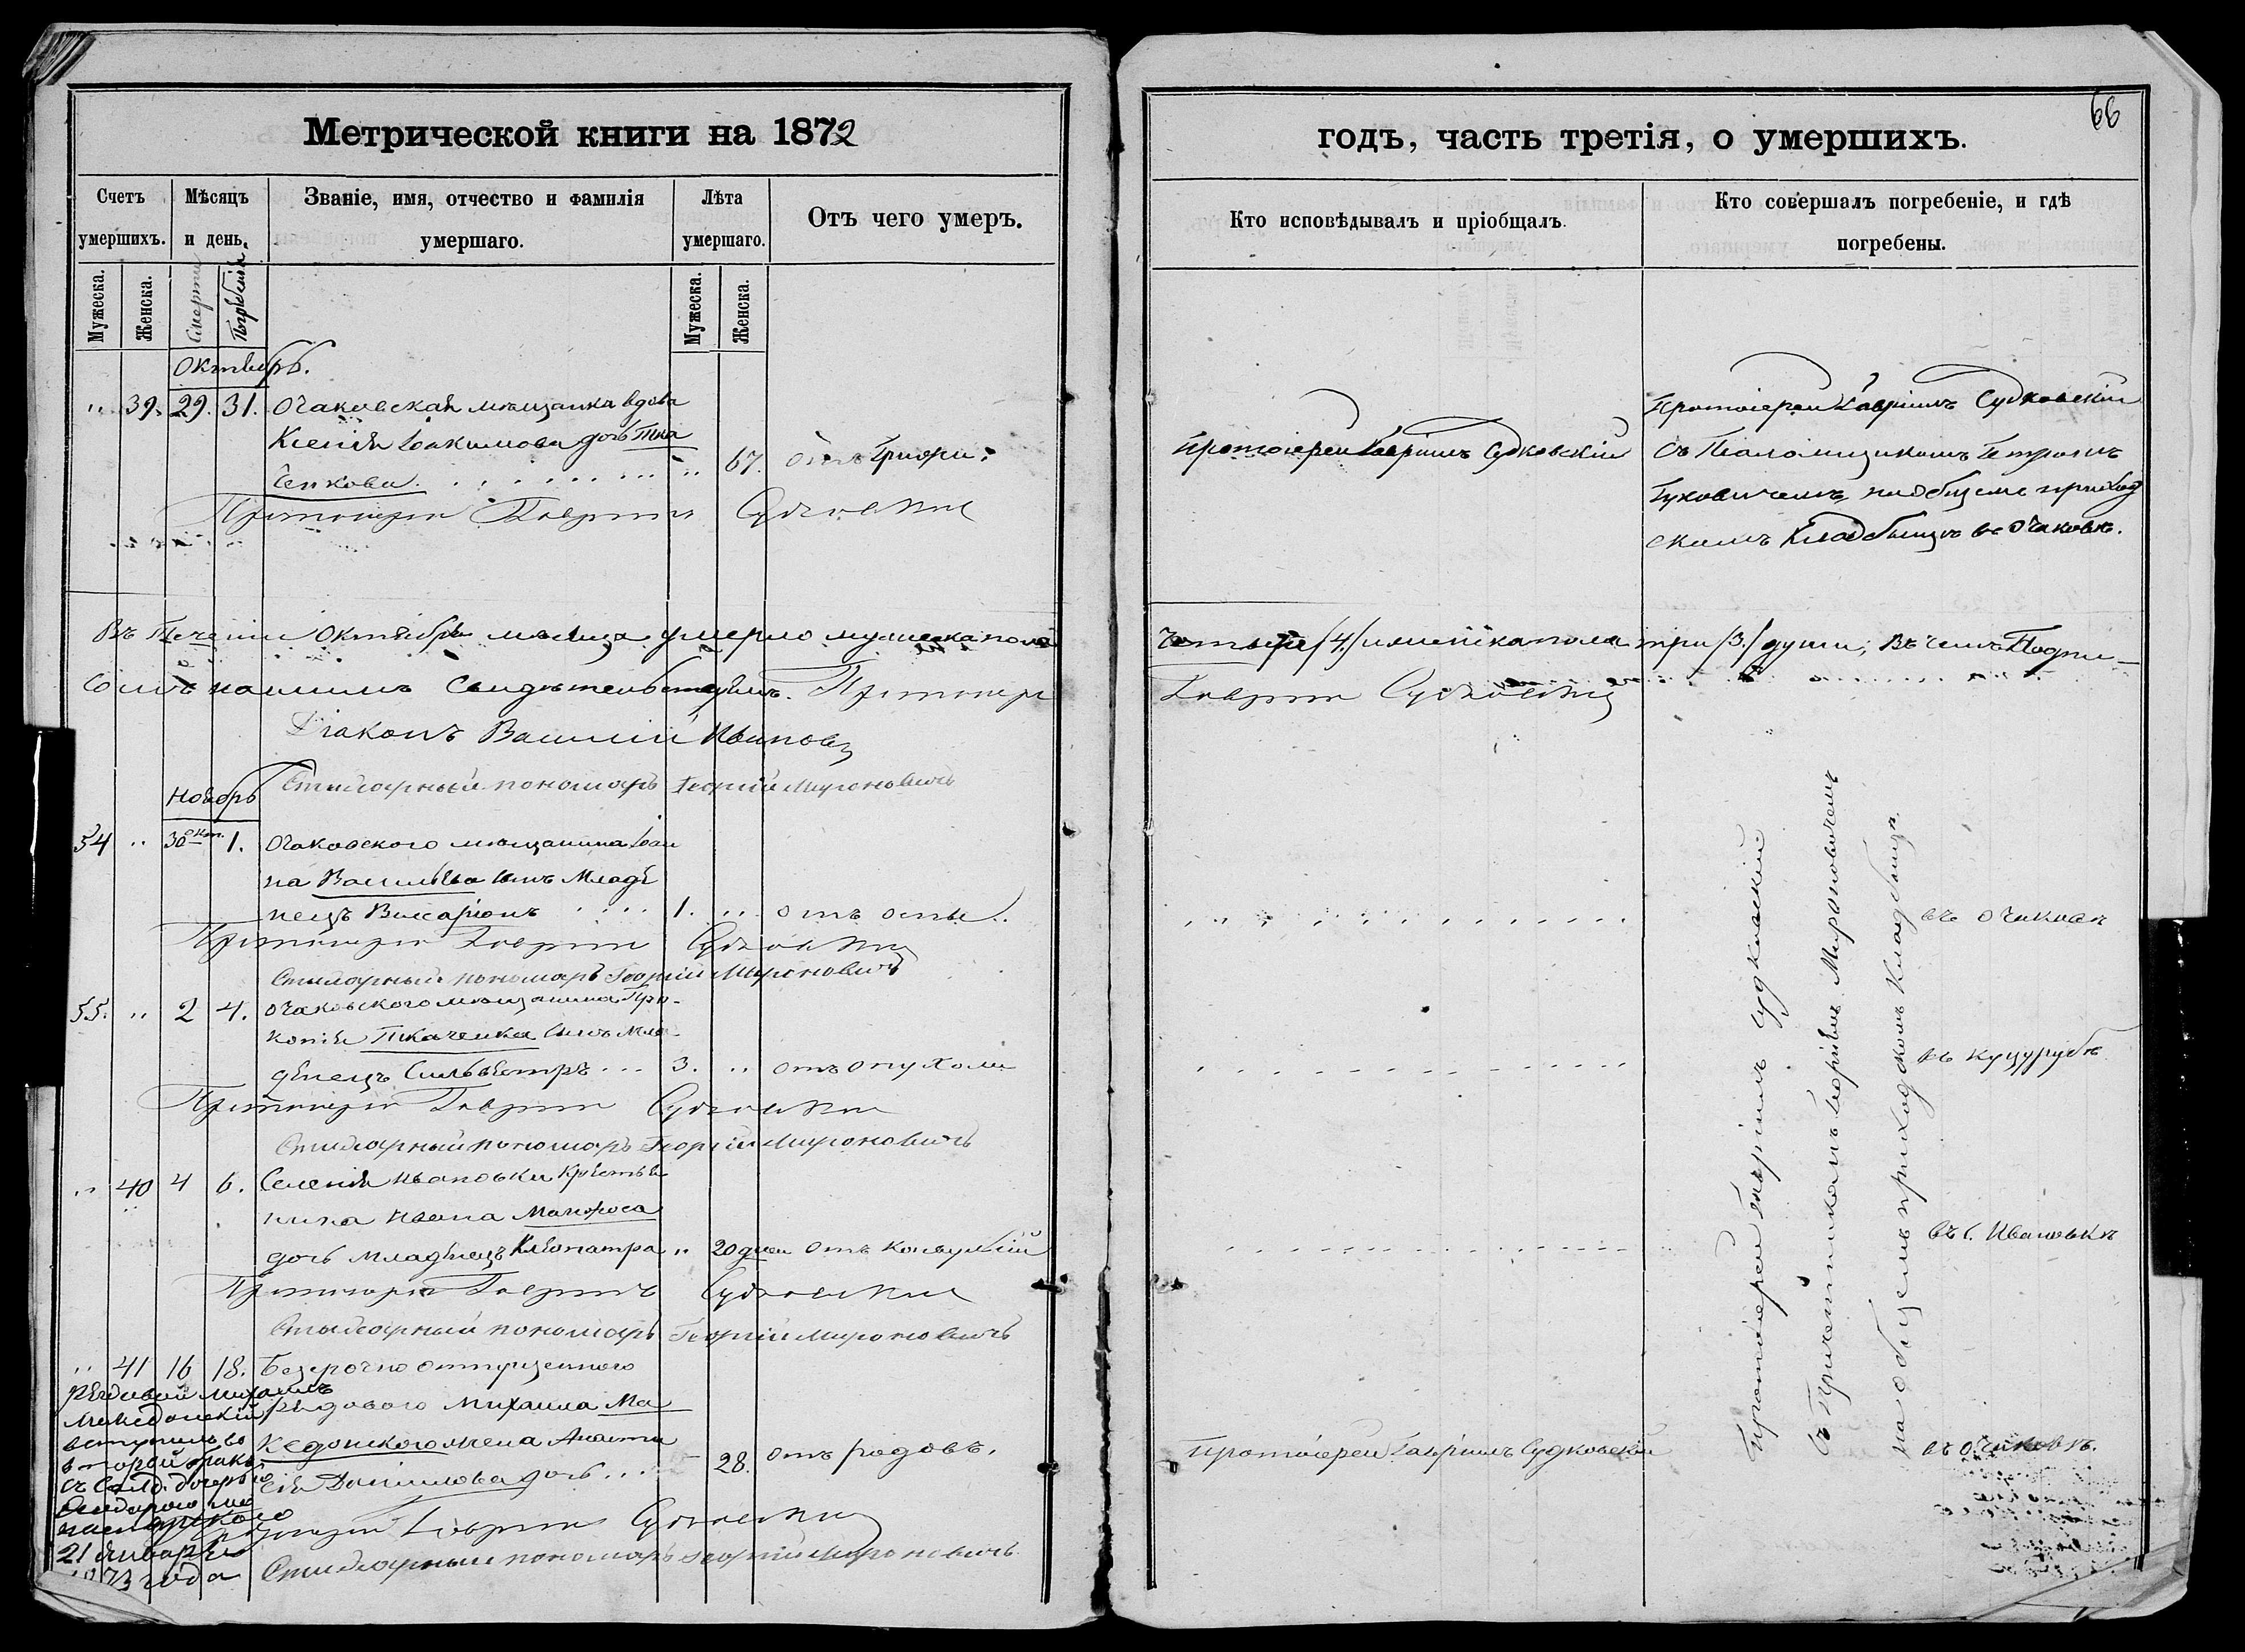 Метрической книги на 1872
годъ, часть третія, о умершихъ.
66
Счетъ умершихъ.
Мѣсяцъ и день.
Званіе, имя, отчество и фамилія умершаго.
Лѣта умершаго.
Отъ чего умеръ.
Кто исповѣдывалъ и пріобщалъ.
Кто совершалъ погребеніе, и гдѣ погребены.
Мужеска.
Женска.
Смерти
Погребенія
Мужеска.
Женска.
Октябрь.
" 39. 29. 31. Очаковская мѣщанка вдова
Ксенія Іоакимова дочь Тка
ченкова. " 67.
Протоіерей Гавріилъ Судковскій
Протоіерей Гавріилъ Судковскій
Протоіерей Гавріилъ Судковскій
съ Псаломщикомъ Петромъ
на общемъ приход
скомъ Кладбищѣ въ Очаковѣ.
Въ теченіи Октября мѣсяца умерло мужеска пола
четыре /4./ и женска пола три /3./ души; Въ чемъ Подпи-
сомъ нашимъ свидѣтельствуемъ. Протоіерей
Гавріилъ Судковскій
Діаконъ Василій Ивановъ
Стихарный пономарь Георгій Мироновичъ
Ноябрь
54 " 30 окт. 1. Очаковского мѣщанина Іоан
на Васильева сынъ Младе
нецъ Виссаріонъ 1. " отъ оспы.
въ Очаковѣ
Протоіерей Гавріилъ Судковскій
Стихарный пономарь Георгій Мироновичъ
55. " 2 4. Очаковского мѣщанина Про-
копія Ткаченка сынъ Мла-
денецъ Сильвестръ 3. " отъ опухоли
въ Куцурубѣ
Протоіерей Гавріилъ Судковскій
Стихарный пономарь Георгій Мироновичъ
" 40 4 6. Селенія Ивановки Крестья
нина Ивана
дочь младенецъ Клеопатра " 20 дней отъ конвульсій
въ с. Ивановкѣ
Протоіерей Гавріилъ Судковскій
Стихарный пономарь Георгій Мироновичъ
" 41 16 18. Безсрочно отпущенного
рядового Михаила Ма
кедонского жена Анаста
сія Данилова дочь 28. отъ родовъ.
Протоіерей Гавріилъ Судковскій
въ Очаковѣ.
Протоіерей Гавріилъ Судковскій
Стихарный пономарь Георгій Мироновичъ
Рядовой Михаилъ
Македонскій
вступилъ во
второй бракъ
съ Солд. дочерью
21 Января
1873 года
Протоіерей Гавріилъ Судковскій
съ Причетникомъ Георгіемъ Мироновичемъ
на общемъ приходскомъ Кладбищѣ.